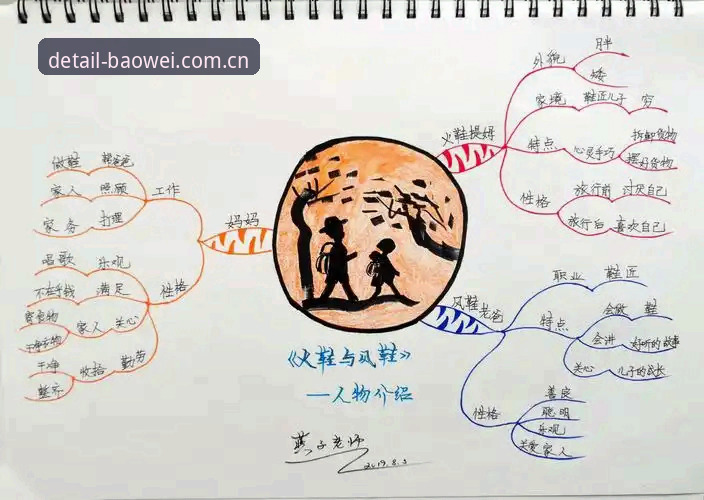 detail-baowei.com.cn
火鞋提姆
外貌
胖
矮
家境
鞋匠儿子
穷
特点
心灵手巧
拆卸货物
摆好货物
性格
旅行前
讨厌自己
旅行后
喜欢自己
妈妈
工作
帮爸爸
做鞋
照顾
家人
打理
家务
性格
乐观
唱歌
满足
不在乎钱
关心
家人
干净衣物
勤劳
收拾
干净
整齐
风鞋老爸
职业
鞋匠
特点
会做
鞋
会讲
好听的故事
关心
儿子的成长
性格
善良
聪明
乐观
关爱家人
《火鞋与风鞋》
—人物介绍
燕子老师
2019.8.3